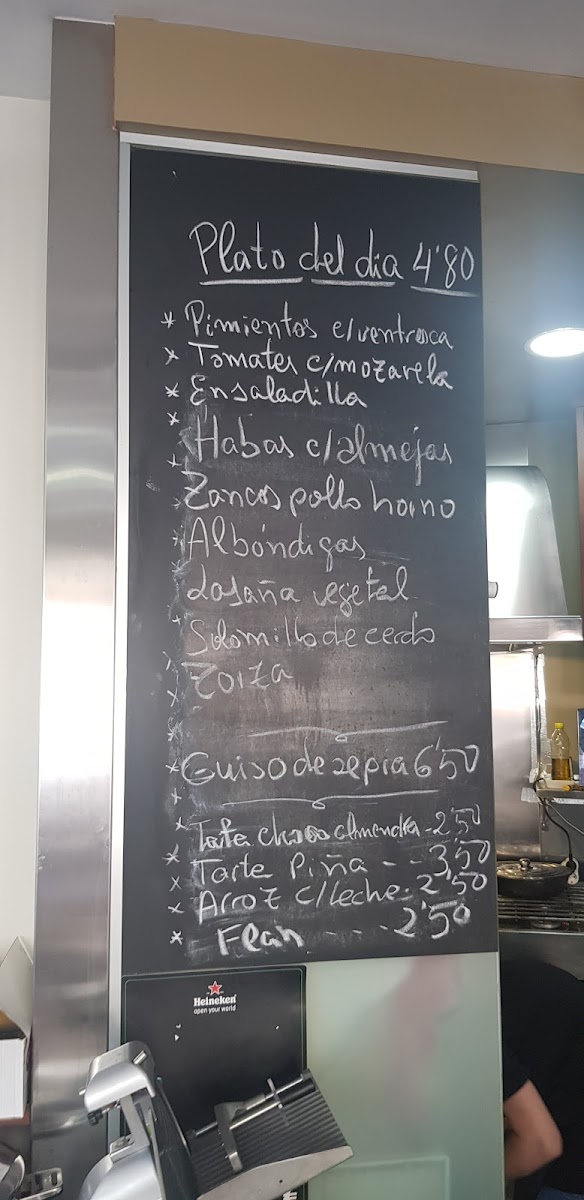 Plato del dia 4'80
* Pimientos c/ventresca
* Tomates c/mozarela
* Ensaladilla
* Habas c/almejas
* Zancos pollo horno
* Albóndigas
Lasaña vegetal
* Solomillo de cerdo
* Zorza
* Guiso de sepia 6'50
* Tarta almendra - 2'50
* Tarte Piña - - 3'50
* Arroz c/leche - 2'50
* Flan - - - 2'50
Heineken
open your world